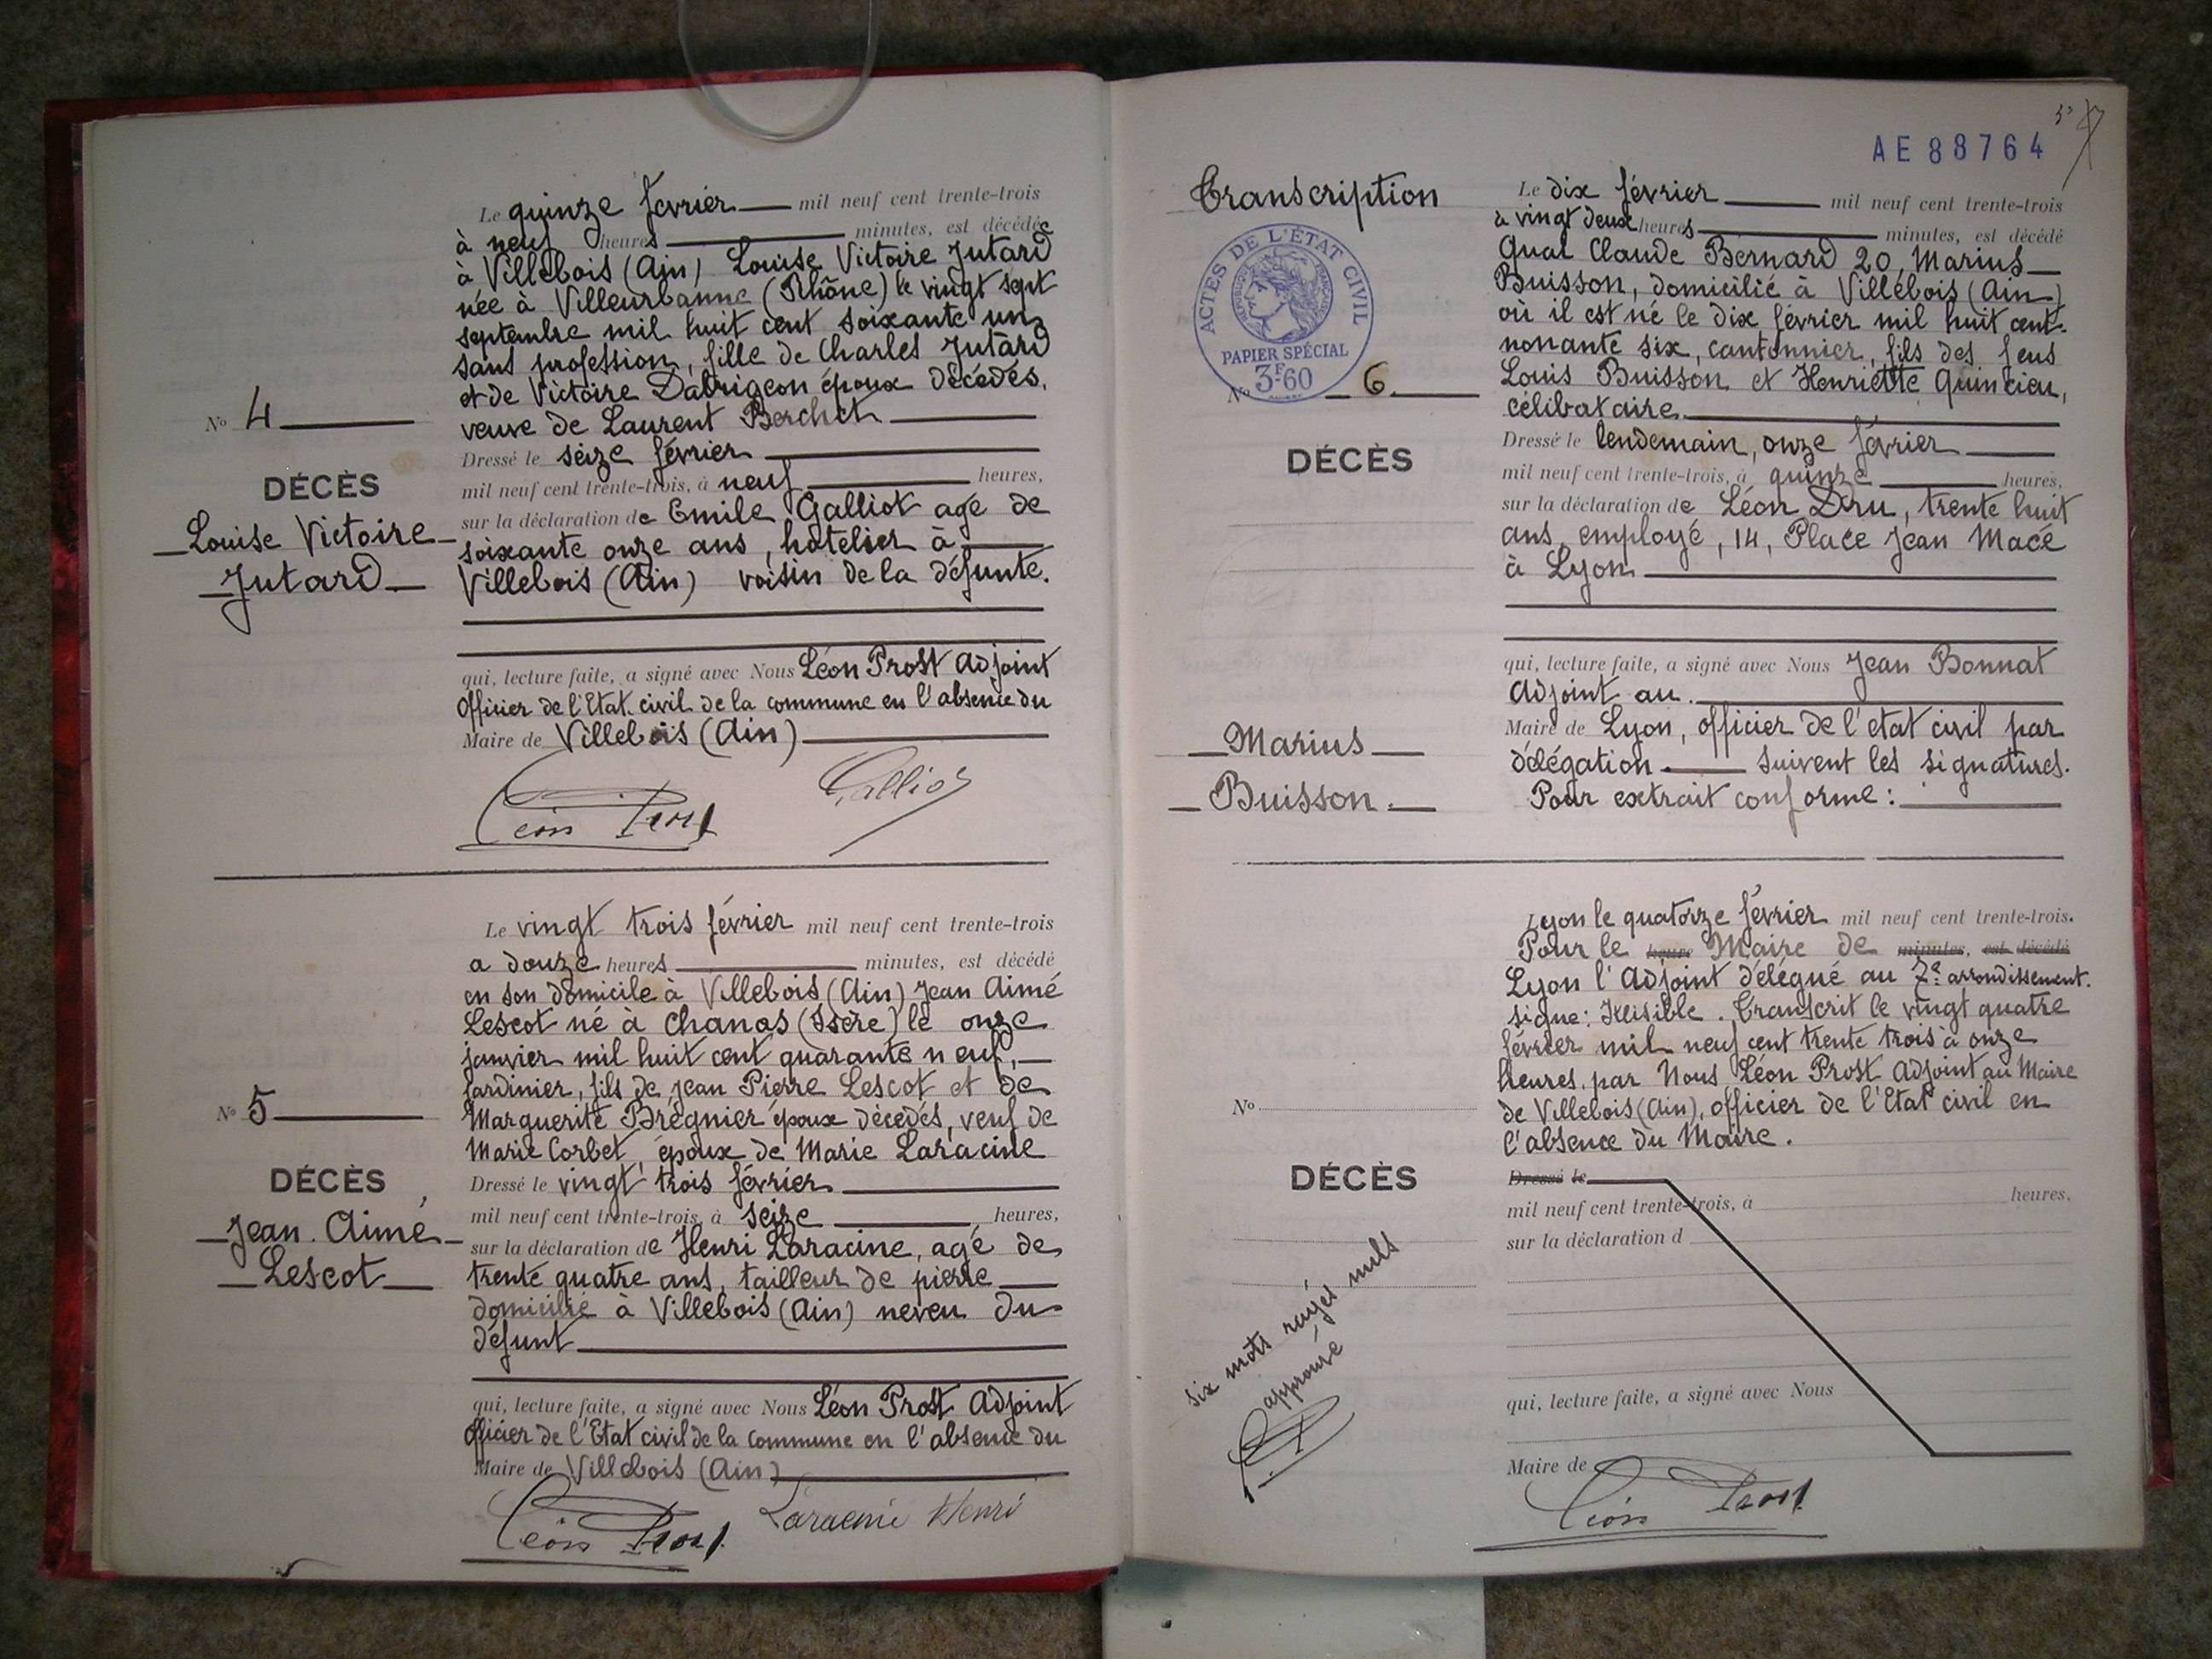 Le quinze février mil neuf cent trente-trois
à neuf heures minutes, est décédée
à Villebois (Ain) Louise Victoire Jutard
née à Villeurbanne (Rhône) le vingt sept
septembre mil huit cent soixante un,
sans profession, fille de Charles Jutard
et de Victoire Dabrigeon époux décédés,
veuve de Laurent Berchet
Nº 4
Dressé le seize février
mil neuf cent trente-trois, à neuf heures,
DÉCÈS
sur la déclaration de Emile Galliot agé de
Louise Victoire
soixante onze ans, hotelier à
Jutard
Villebois (Ain) voisin de la défunte.
qui, lecture faite, a signé avec Nous Léon Prost Adjoint
Officier de l'Etat civil de la commune en l'absence du
Maire de Villebois (Ain)
Léon Prost Galliot
Le vingt trois février mil neuf cent trente-trois
a douze heures minutes, est décédé
en son domicile à Villebois (Ain) Jean Aimé
Lescot né à Chanas (Isère) le onze
janvier mil huit cent quarante neuf,
jardinier, fils de Jean Pierre Lescot et de
Nº 5
Marguerite Brégnier époux décédés, veuf de
Marie Corbet, époux de Marie Laracine
DÉCÈS
Dressé le vingt trois février
mil neuf cent trente-trois, à seize heures,
Jean Aimé
sur la déclaration de Henri Laracine, agé de
Lescot
trente quatre ans, tailleur de pierre
domicilié à Villebois (Ain) neveu du
défunt
qui, lecture faite, a signé avec Nous Léon Prost Adjoint
Officier de l'Etat civil de la commune en l'absence du
Maire de Villebois (Ain)
Léon Prost Laracine Henri
AE88764
Transcription
ACTES DE L'ÉTAT CIVIL
PAPIER SPÉCIAL
3F60
Nº 6
Le dix février mil neuf cent trente-trois
à vingt deux heures minutes, est décédé
Quai Claude Bernard 20, Marius
Buisson, domicilié à Villebois (Ain)
où il est né le dix février mil huit cent
nonante six, cantonnier, fils des feus
Louis Buisson et Henriette Quincieu,
célibataire
DÉCÈS
Dressé le lendemain, onze février
mil neuf cent trente-trois, à quinze heures,
sur la déclaration de Léon Dru, trente huit
ans, employé, 14, Place Jean Macé
à Lyon
qui, lecture faite, a signé avec Nous Jean Bonnat
Adjoint au
Marius
Maire de Lyon, officier de l'etat civil par
Buisson
délégation suivent les signatures.
Pour extrait conforme:
Lyon le quatorze février mil neuf cent trente-trois.
Pour le heure Maire de minutes, est décédé
Lyon l'Adjoint délégué au 7e arrondissement.
signé: Illisible. Transcrit le vingt quatre
février mil neuf cent trente trois à onze
heures, par Nous Léon Prost Adjoint au Maire
Nº
de Villebois (Ain), officier de l'Etat civil en
l'absence du Maire.
DÉCÈS
Dressé le
mil neuf cent trente-trois, à heures,
sur la déclaration d
six mots rayés nuls
approuvé
qui, lecture faite, a signé avec Nous
Maire de
Léon Prost